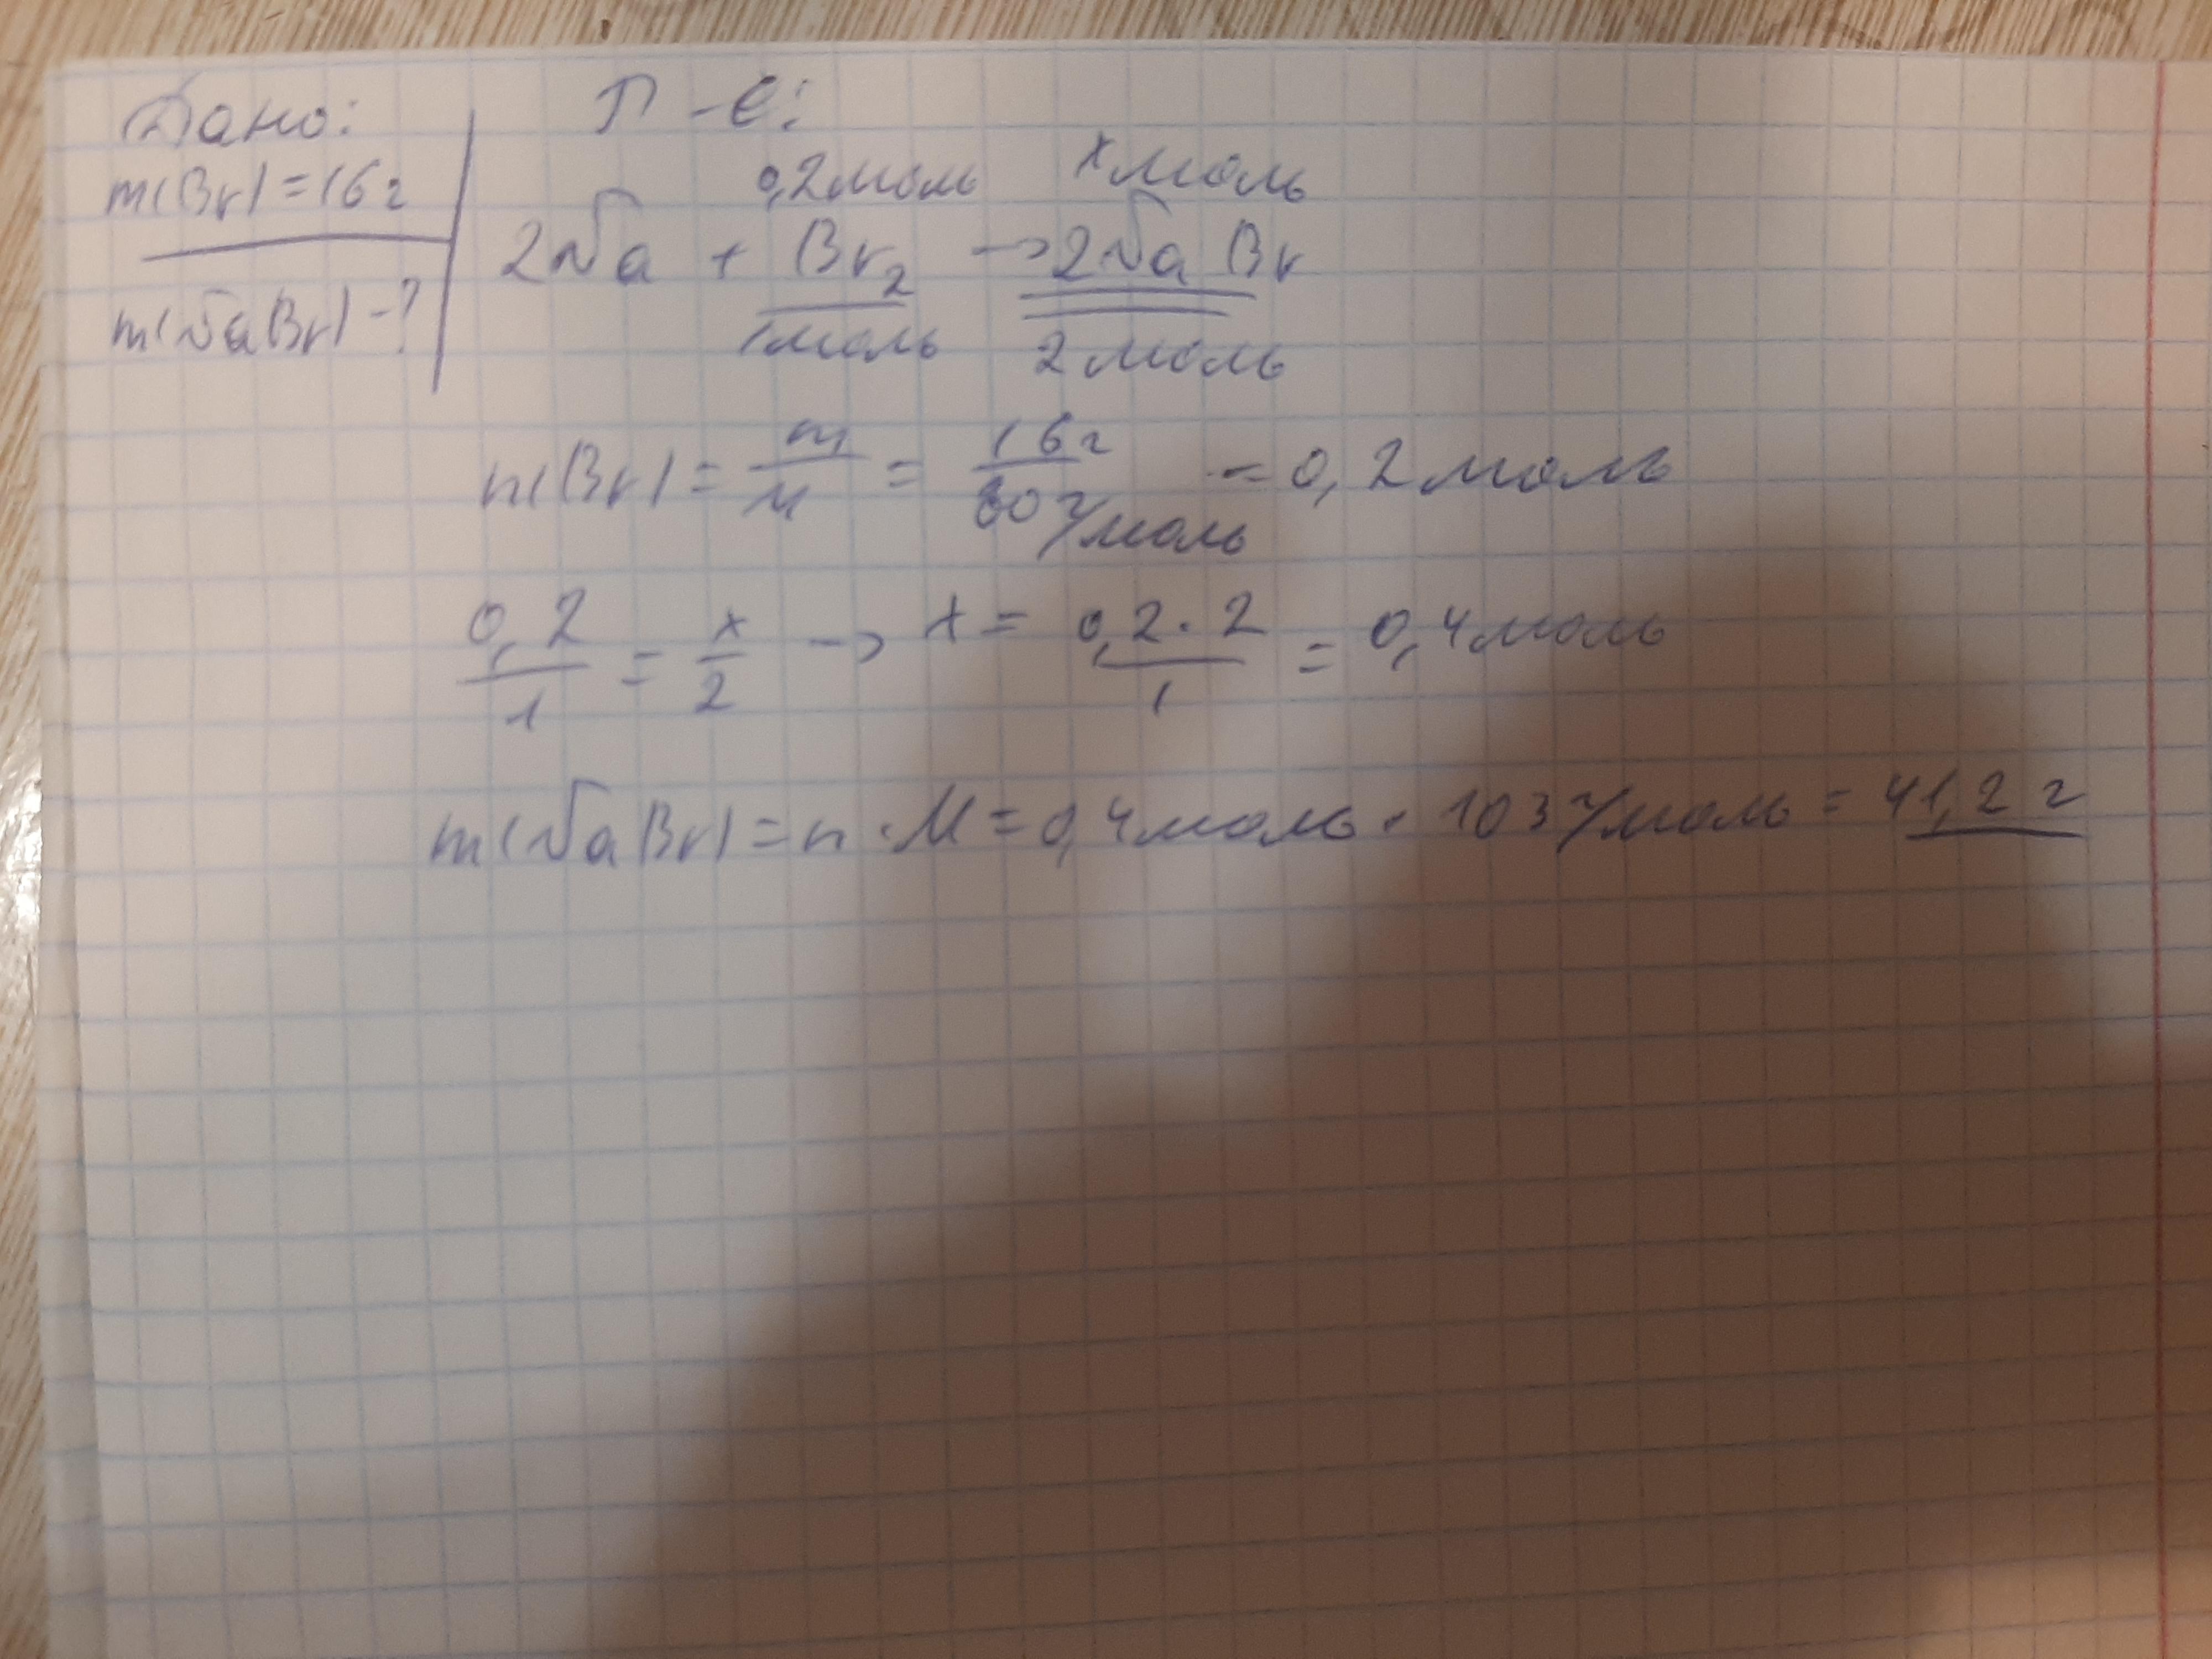 Дано:
m(Br)=16г
m(NaBr)-?
Р-е:
0,2моль xмоль
2Na + Br₂ → 2NaBr
1моль 2моль
n(Br)= m/M = 16г/80г/моль = 0,2моль
0,2/1 = x/2 → x = 0,2·2/1 = 0,4моль
m(NaBr)=n·M=0,4моль·103г/моль=41,2г